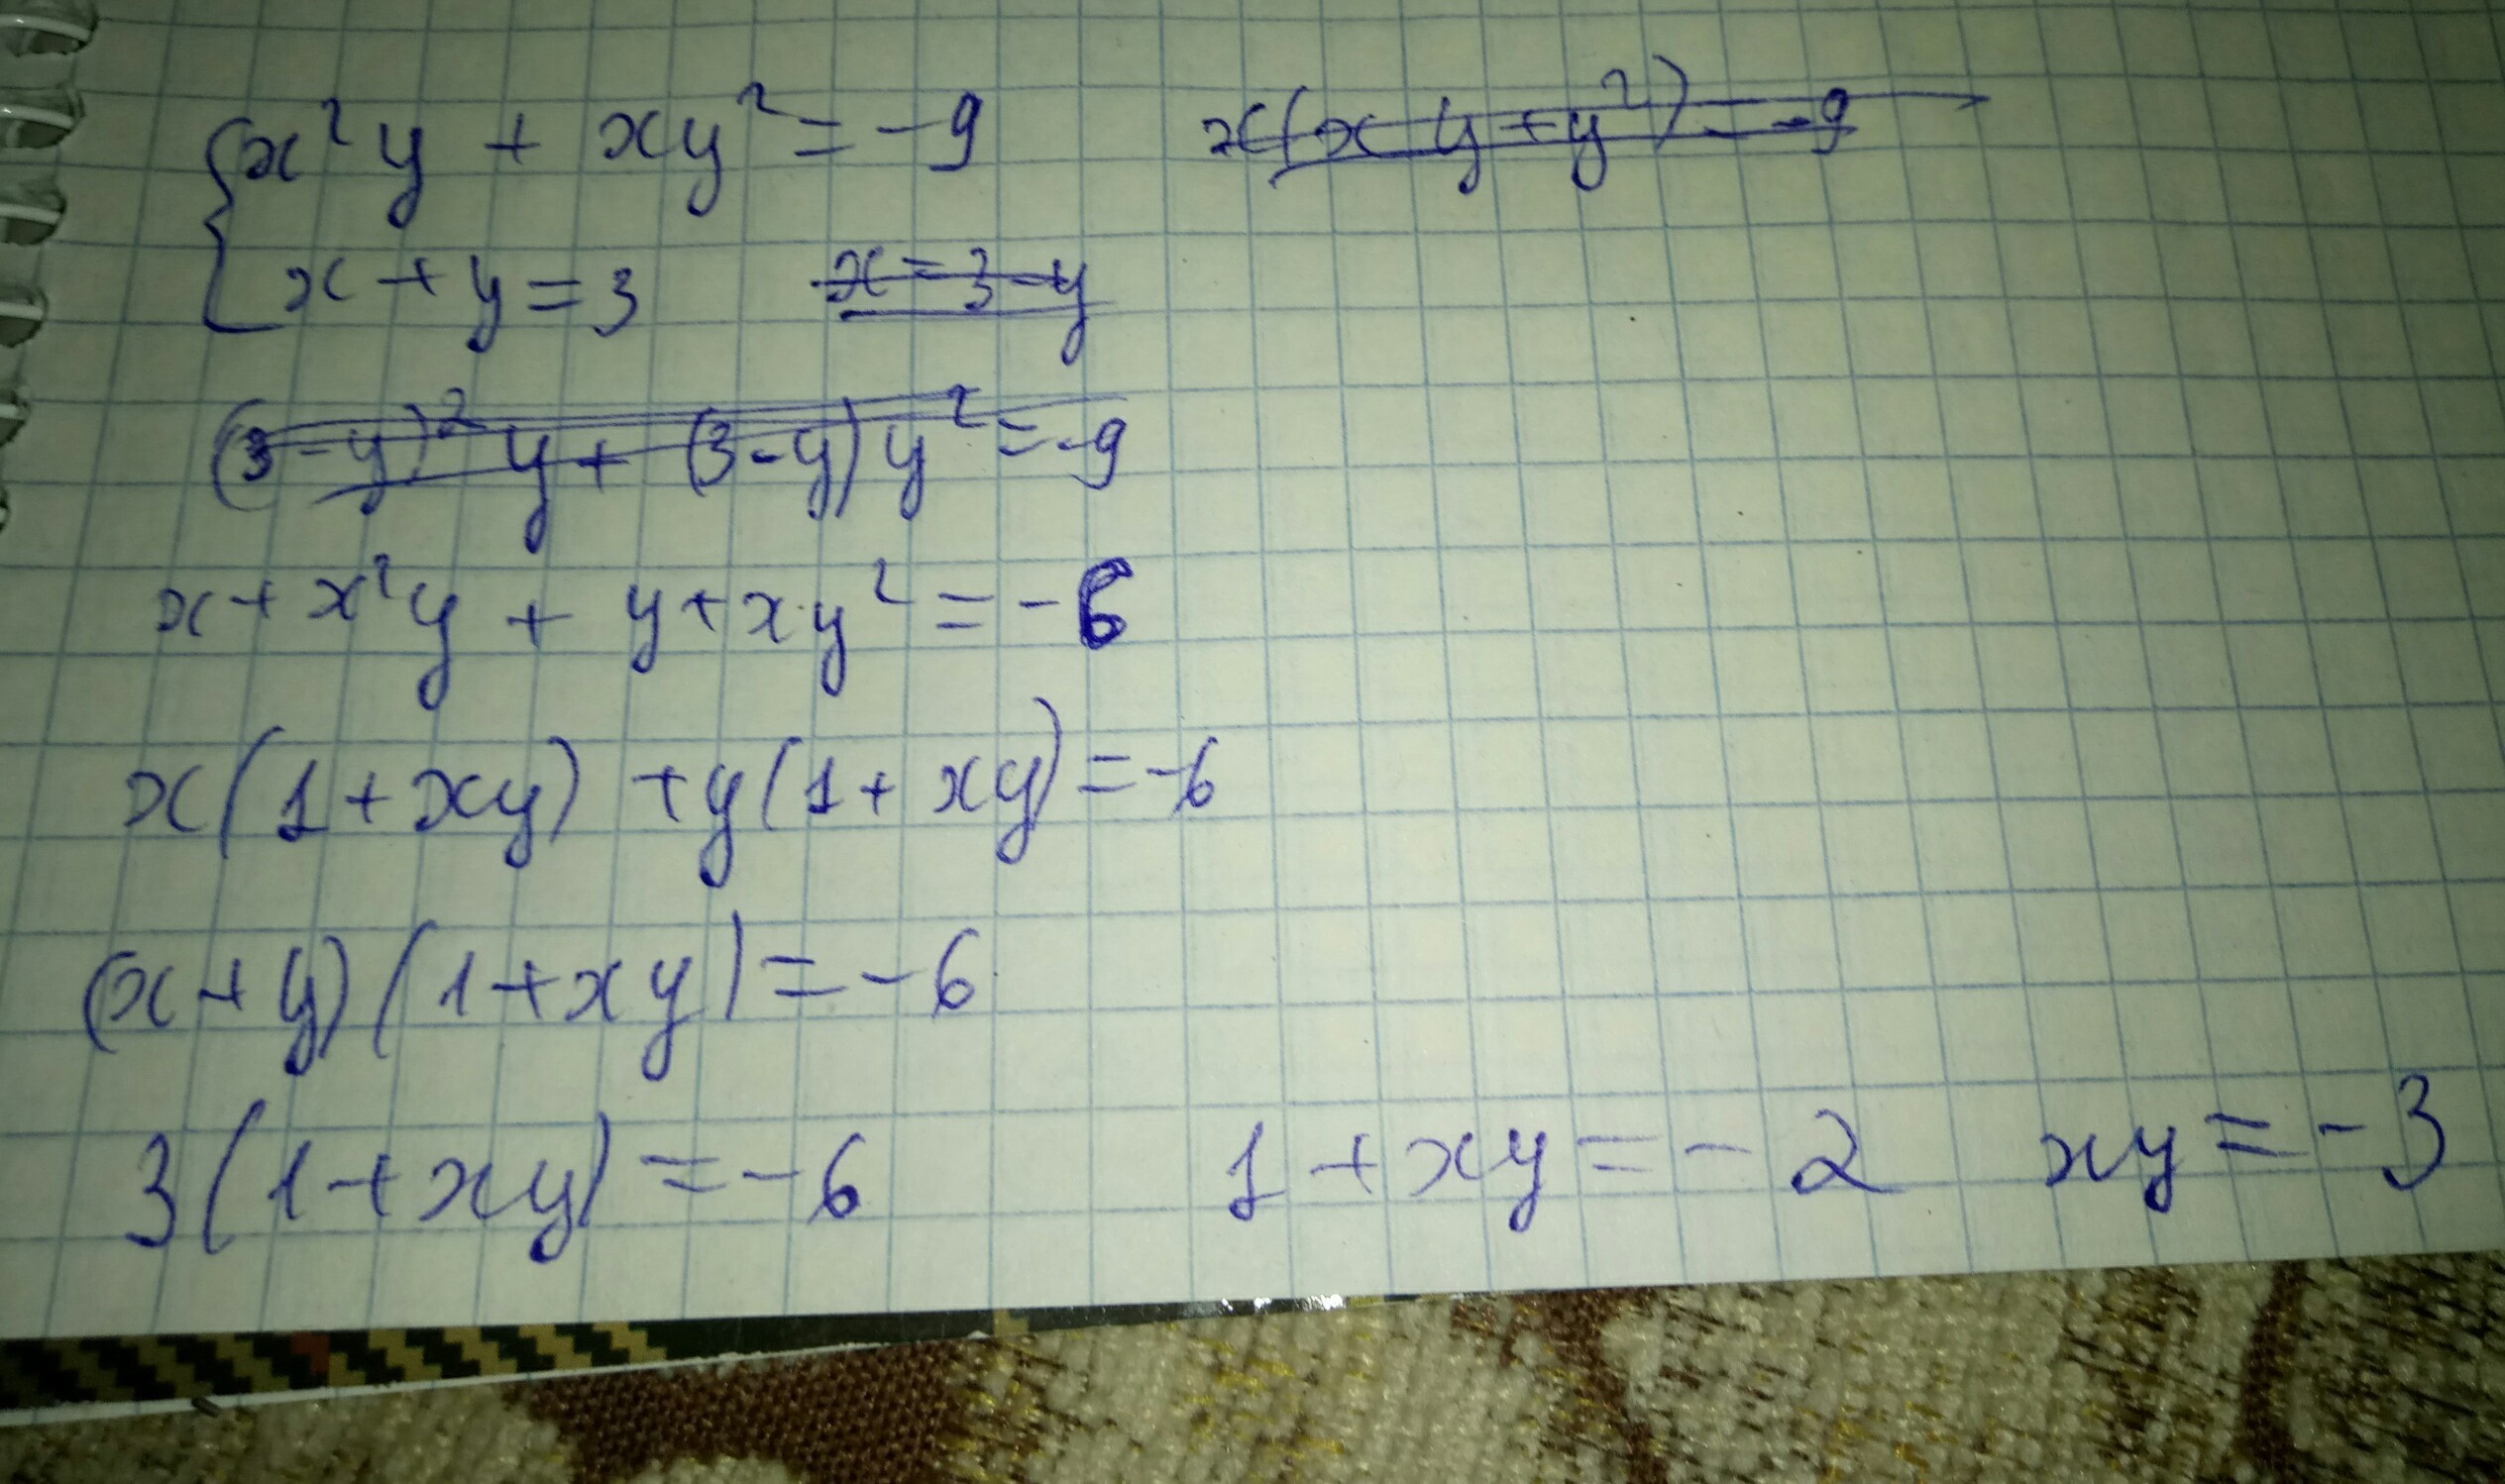 x²y + xy² = -9 x(xy+y²) = -9
x + y = 3 x = 3-y
(3-y)²y + (3-y)y² = -9
x + x²y + y + xy² = -6
x(1+xy) + y(1+xy) = -6
(x+y)(1+xy) = -6
3(1+xy) = -6 1+xy = -2 xy = -3